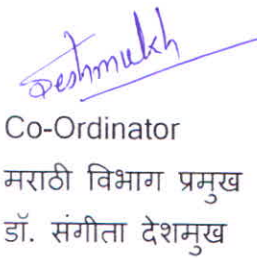 Deshmukh
Co-Ordinator
मराठी विभाग प्रमुख
डॉ. संगीता देशमुख